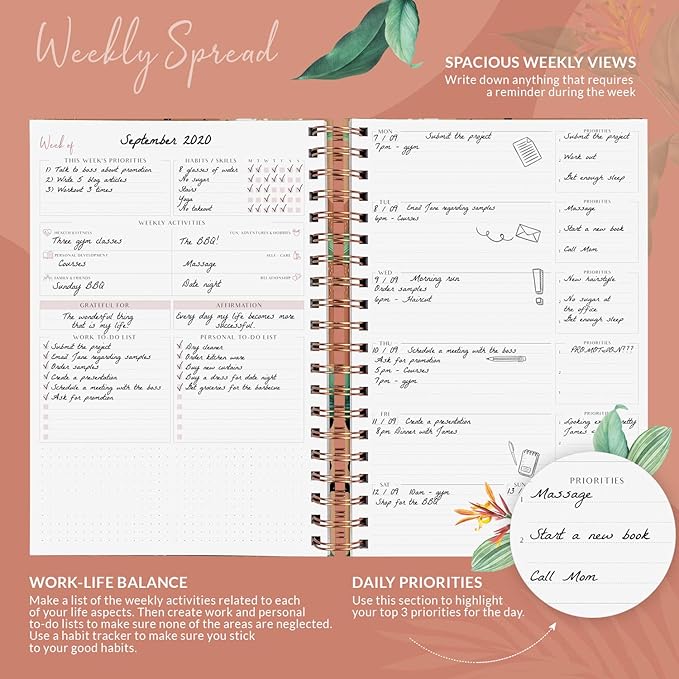 Weekly Spread
SPACIOUS WEEKLY VIEWS
Write down anything that requires
a reminder during the week
Week of
September 2020
THIS WEEK'S PRIORITIES
1) Talk to boss about promotion
2) Write 5 blog articles
3) Workout 3 times
HABITS / SKILLS
M T W T F S S
8 glasses of water
No sugar
Stairs
Yoga
No takeout
WEEKLY ACTIVITIES
HEALTH & FITNESS
Three gym classes
FUN, ADVENTURES & HOBBIES
The BBQ!
PERSONAL DEVELOPMENT
Courses
SELF - CARE
Massage
FAMILY & FRIENDS
Sunday BBQ
RELATIONSHIP
Date night
GRATEFUL FOR
The wonderful thing
that is my life.
AFFIRMATION
Every day my life becomes more
successful.
WORK TO-DO LIST
Submit the project
Email Jane regarding samples
Order samples
Create a presentation
Schedule a meeting with the boss
Ask for promotion
PERSONAL TO-DO LIST
Dry cleaner
Order kitchen ware
Buy new curtains
Buy a dress for date night
Get groceries for the barbecue
MON
7 / 09 Submit the project
7pm - gym
PRIORITIES
1 Submit the project
2 Work out
3 Get enough sleep
TUE
8 / 09 Email Jane regarding samples
6pm - Courses
PRIORITIES
1 Massage
2 Start a new book
3 Call Mom
WED
9 / 09 Morning run
Order samples
6pm - Haircut
PRIORITIES
1 New hairstyle
2 No sugar at
the office
3 Get enough sleep
THU
10 / 09 Schedule a meeting with the boss
Ask for promotion
5pm - Courses
7pm - gym
PRIORITIES
1 PROMOTION???
2
3
FRI
11 / 09 Create a presentation
8pm Dinner with James
PRIORITIES
1 Looking pretty
James
SAT
12 / 09 10am - gym
Shop for the BBQ
SUN
13 /
PRIORITIES
1 Massage
2 Start a new book
Call Mom
WORK-LIFE BALANCE
Make a list of the weekly activities related to each
of your life aspects. Then create work and personal
to-do lists to make sure none of the areas are neglected.
Use a habit tracker to make sure you stick
to your good habits.
DAILY PRIORITIES
Use this section to highlight
your top 3 priorities for the day.